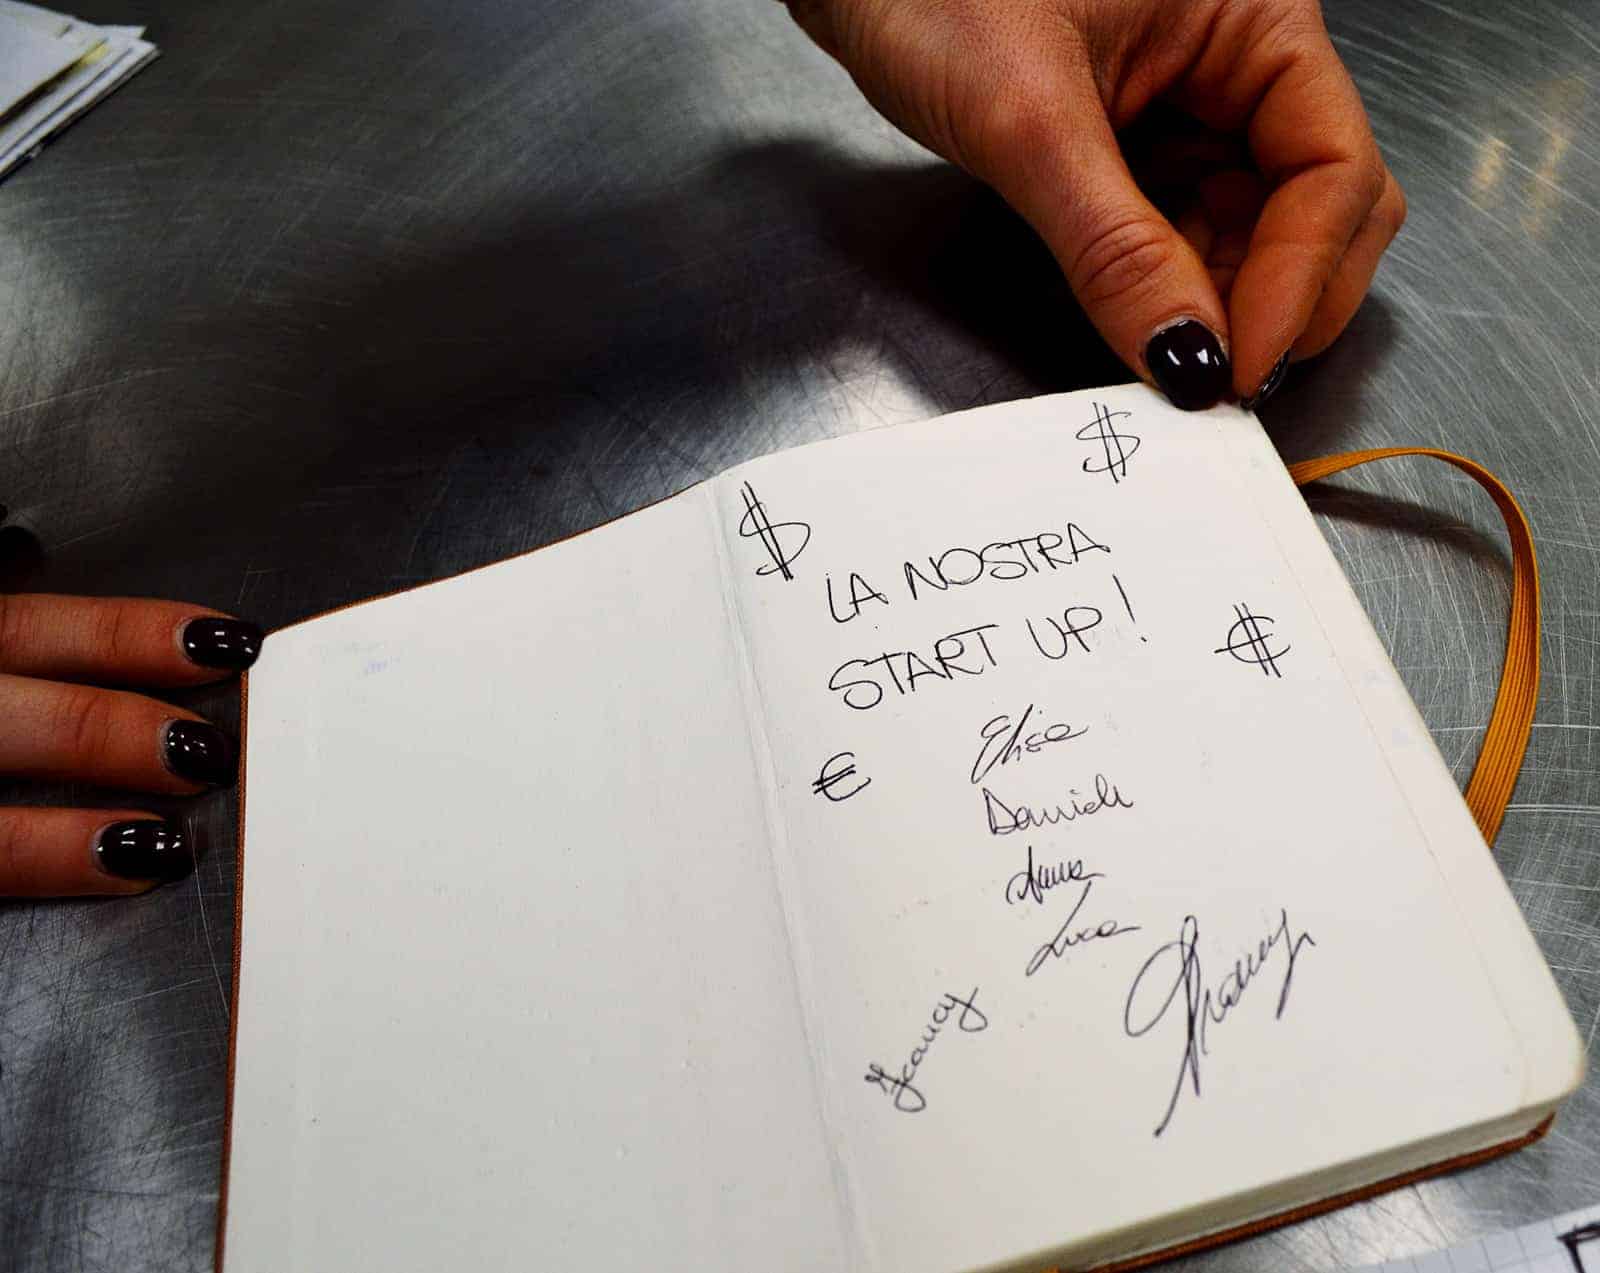 $
$
LA NOSTRA
START UP!
€
Elisa
Daniele
Anna
Luca